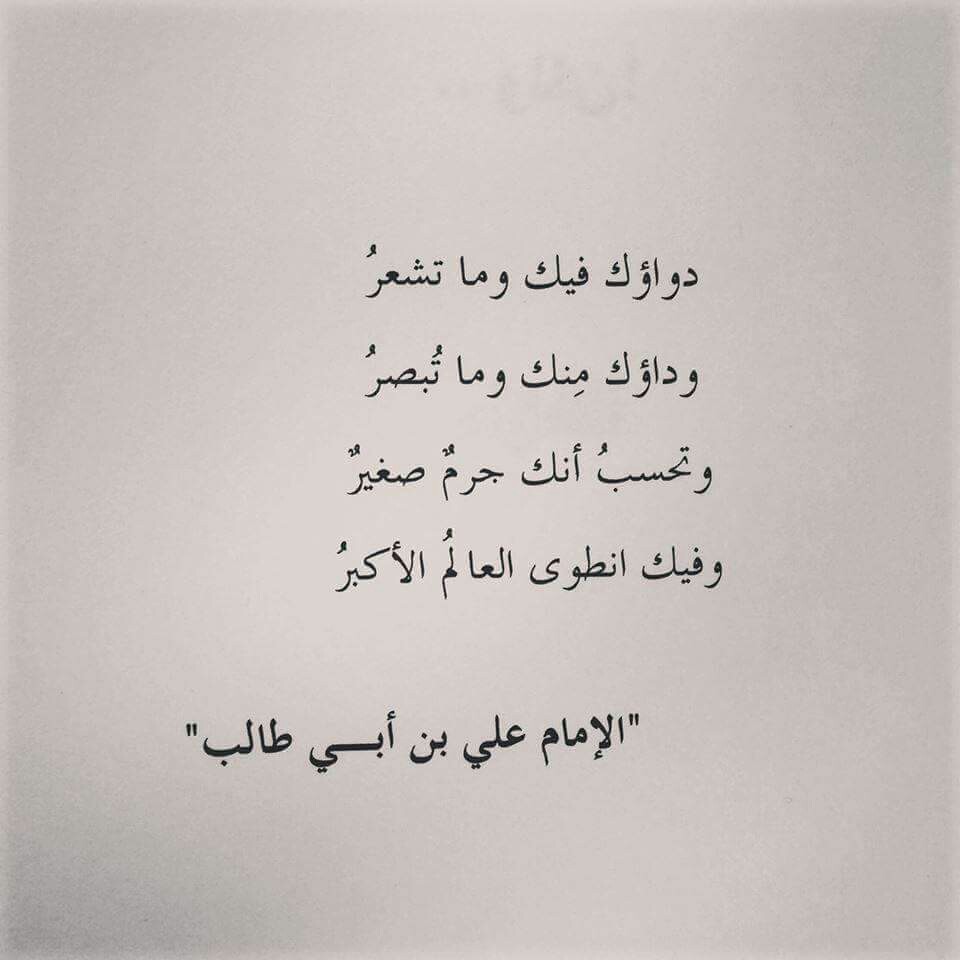 دواؤك فيك وما تشعرُ
وداؤك مِنك وما تُبصرُ
وتحسبُ أنك جرمٌ صغيرٌ
وفيك انطوى العالمُ الأكبرُ
"الإمام علي بن أبـــي طالب"